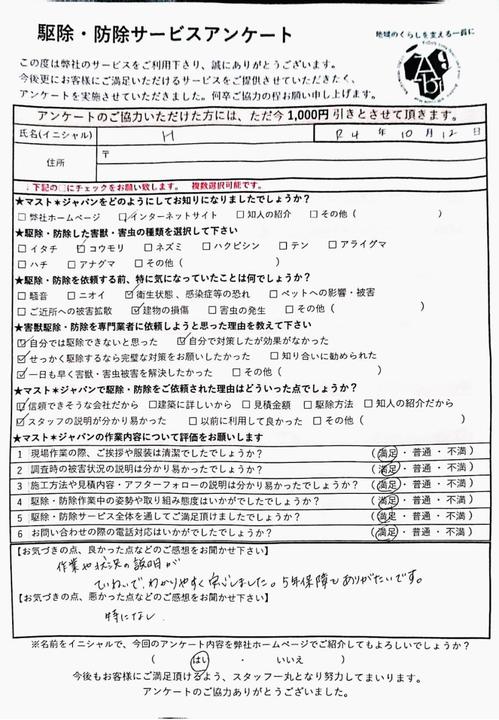 駆除・防除サービスアンケート
地域のくらしを支える一員に
この度は弊社のサービスをご利用下さり、誠にありがとうございます。
今後更にお客様にご満足いただけるサービスをご提供させていただきたく、
アンケートを実施させていただきました。何卒ご協力の程お願い申し上げます。
アンケートのご協力いただけた方には、ただ今1,000円引きとさせて頂きます。
氏名(イニシャル) H R4 年 10 月 12 日
住所 〒
↓下記の□にチェックをお願い致します。 複数選択可能です。
★マスト＊ジャパンをどのようにしてお知りになりましたでしょうか？
□ 弊社ホームページ ☑ インターネットサイト □ 知人の紹介 □ その他（ ）
★駆除・防除した害獣・害虫の種類を選択して下さい
□ イタチ ☑ コウモリ □ ネズミ □ ハクビシン □ テン □ アライグマ
□ ハチ □ アナグマ □ その他（ ）
★駆除・防除を依頼する前、特に気になっていたことは何でしょうか？
□ 騒音 □ ニオイ ☑ 衛生状態、感染症等の恐れ □ ペットへの影響・被害
□ ご近所への被害拡散 ☑ 建物の損傷 □ 害虫の発生 □ その他（ ）
★害獣駆除・防除を専門業者に依頼しようと思った理由を教えて下さい
☑ 自分では駆除できないと思った ☑ 自分で対策したが効果がなかった
☑ せっかく駆除するなら完璧な対策をお願いしたかった □ 知り合いに勧められた
☑ 一日も早く害獣・害虫被害を解決したかった □ その他（ ）
★マスト＊ジャパンで駆除・防除をご依頼された理由はどういった点でしょうか？
☑ 信頼できそうな会社だから □ 建築に詳しいから □ 見積金額 □ 駆除方法 □ 知人の紹介だから
☑ スタッフの説明が分かり易かった □ 以前に利用して良かった □ その他（ ）
★マスト＊ジャパンの作業内容について評価をお願いします
1 現場作業の際、ご挨拶や服装は清潔でしたでしょうか？ （ 満足 ・ 普通 ・ 不満 ）
2 調査時の被害状況の説明は分かり易かったでしょうか？ （ 満足 ・ 普通 ・ 不満 ）
3 施工方法や見積内容・アフターフォローの説明は分かり易かったでしょうか？ （ 満足 ・ 普通 ・ 不満 ）
4 駆除・防除作業中の姿勢や取り組み態度はいかがでしたでしょうか？ （ 満足 ・ 普通 ・ 不満 ）
5 駆除・防除サービス全体を通してご満足頂けましたでしょうか？ （ 満足 ・ 普通 ・ 不満 ）
6 お問い合わせの際の電話対応はいかがでしたでしょうか？ （ 満足 ・ 普通 ・ 不満 ）
【お気づきの点、良かった点などのご感想をお聞かせ下さい】
作業や状況の説明が
ていねいで、わかりやすく安心しました。5年保障もありがたいです。
【お気づきの点、悪かった点などのご感想をお聞かせ下さい】
特になし
※名前をイニシャルで、今回のアンケート内容を弊社ホームページでご紹介してもよろしいでしょうか？
（ はい ・ いいえ ）
今後もお客様にご満足頂けるよう、スタッフ一丸となり努力してまいります。
アンケートのご協力ありがとうございました。